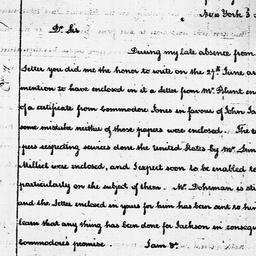 New York 3
Dr. Sir
During my late absence from
letter you did me the honor to write on the 27th June
mention to have enclosed in it a Letter from Mr. Blunt
of a certificate from Commodore Jones in favour of John Ja
some mistake neither of those papers was enclosed. The
pers respecting services done the United States by Mr.
Milliet were enclosed, and I expect soon to be enabled to
particularly on the subject of them. Mr. Dohrman is
and the Letter enclosed in yours for him has been sent to hi
learn that any thing has been done for Jackson in conseq
Commodore's promise. I am &c.